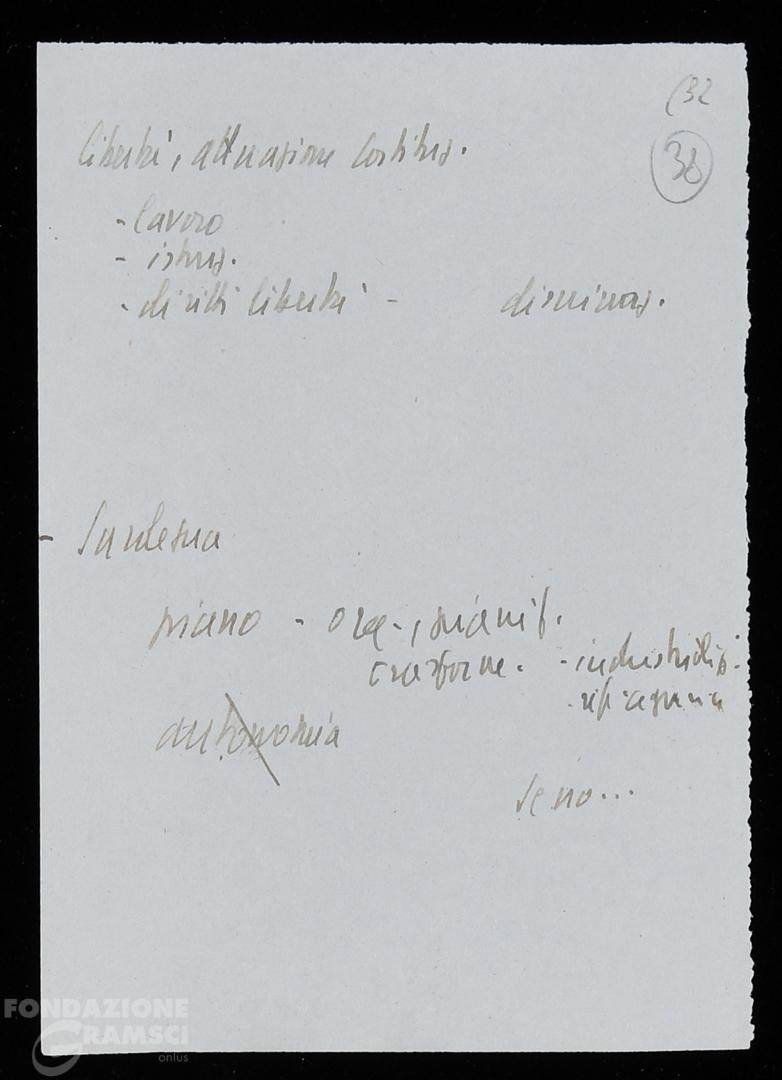 (32
38
libertà, attuazione Costituz.
- lavoro
- istruz.
- diritti libertà - discriminaz.
- Sardegna
piano - org., pianif.
trasform. - industrializ.
- rif. agraria
autonomia
se no...
FONDAZIONE
GRAMSCI
onlus